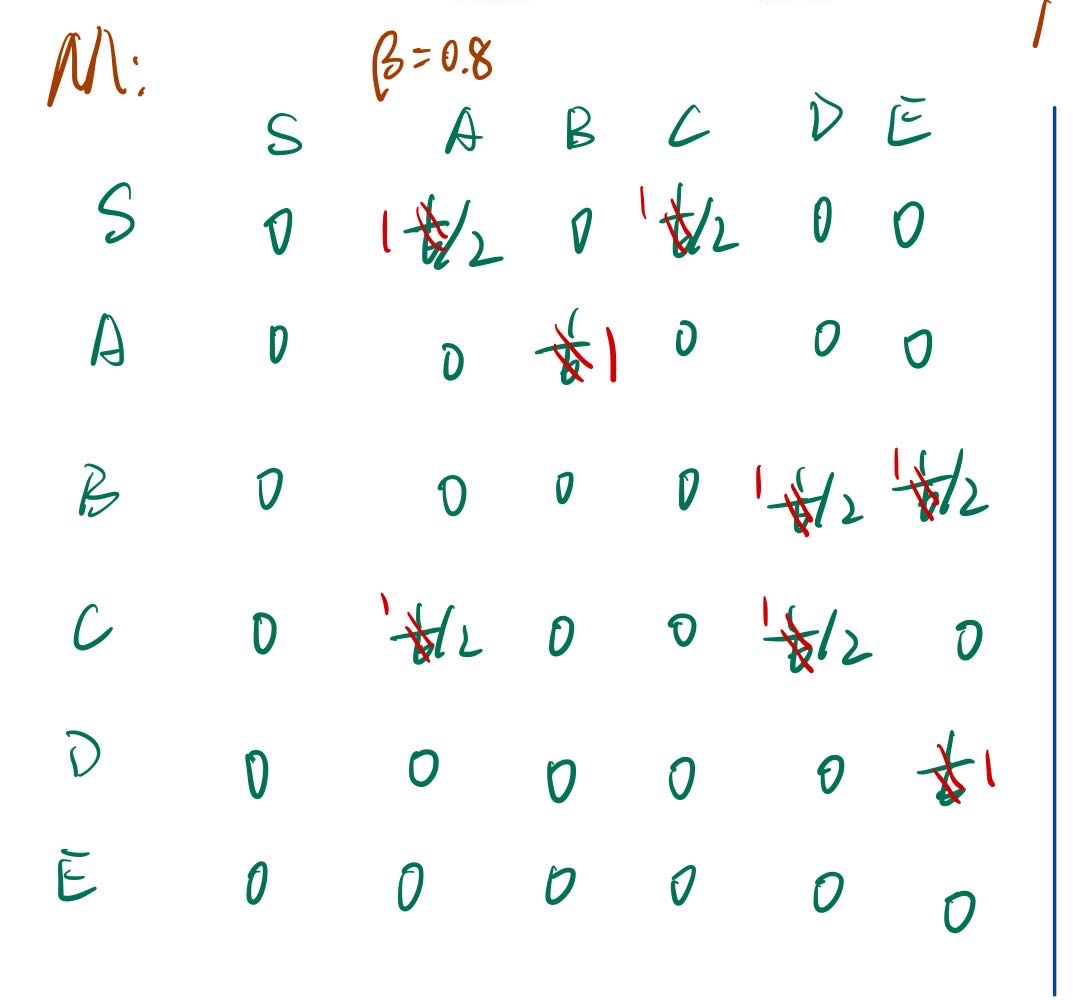 M: β=0.8
S A B C D E
S 0 1/2 0 1/2 0 0
A 0 0 1 0 0 0
B 0 0 0 0 1/2 1/2
C 0 1/2 0 0 1/2 0
D 0 0 0 0 0 1
E 0 0 0 0 0 0